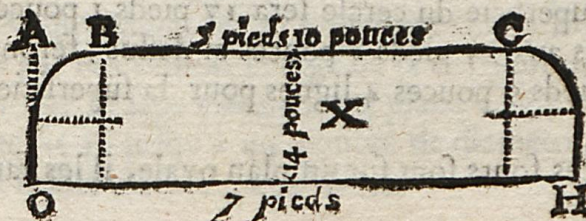 A B 5 pieds 10 pouces C
14 pouces
X
O 7 pieds H